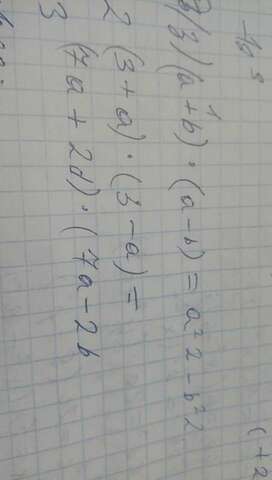 (a + b) · (a - b) = a² 2 - b² 2
2 (3 + a) · (3 - a) =
3 (7a + 2d) · (7a - 2b
(+2